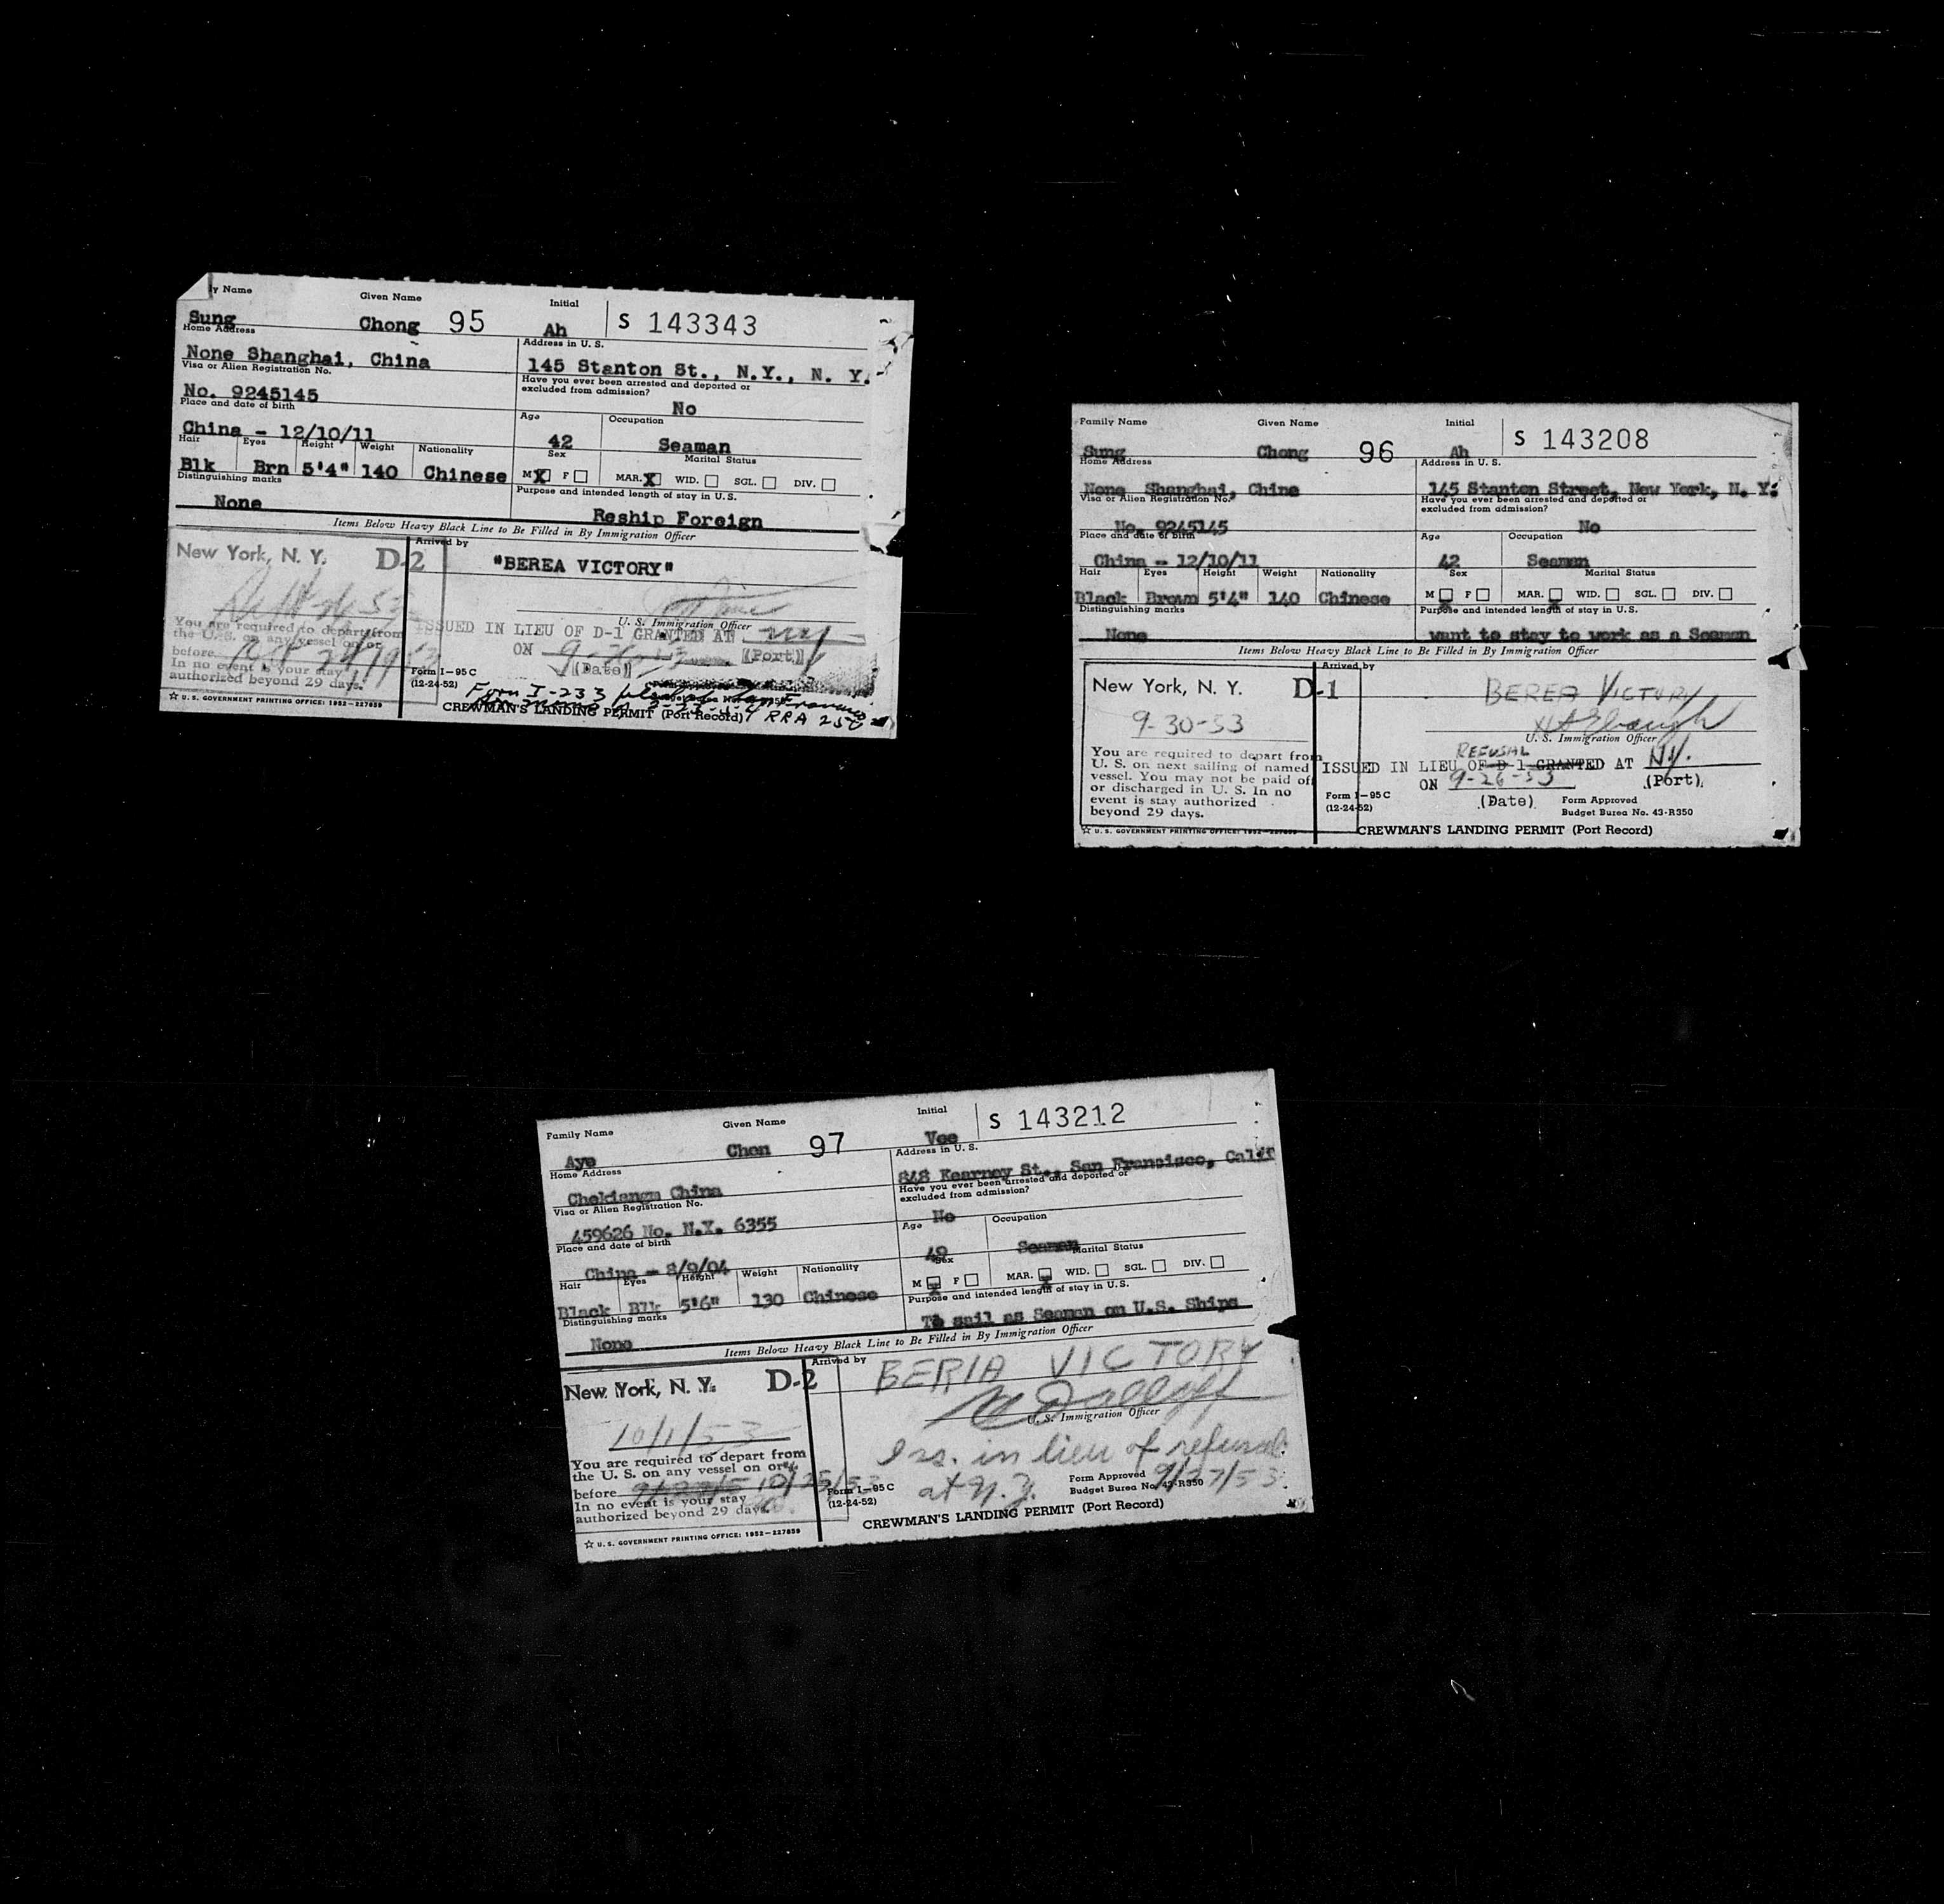 ly Name Given Name Initial
Sung Chong 95 Ah S 143343
Home Address Address in U. S.
None Shanghai, China 145 Stanton St., N.Y., N. Y.
Visa or Alien Registration No. Have you ever been arrested and deported or
excluded from admission?
No. 9245145 No
Place and date of birth Age Occupation
China - 12/10/11 42 Seaman
Hair Eyes Height Weight Nationality Sex Marital Status
Blk Brn 5'4" 140 Chinese M X F MAR. X WID. SGL. DIV.
Distinguishing marks Purpose and intended length of stay in U.S.
None Reship Foreign
Items Below Heavy Black Line to Be Filled in By Immigration Officer
New York, N. Y. D-2 Arrived by
"BEREA VICTORY"
U. S. Immigration Officer
You are required to depart from
the U.S. on any vessel on or
before
In no event is your stay
authorized beyond 29 days.
ISSUED IN LIEU OF D-1 GRANTED AT
ON (Date) (Port)
Form I-95 C
(12-24-52)
Form I-233
☆ U. S. GOVERNMENT PRINTING OFFICE: 1952-227859
CREWMAN'S LANDING PERMIT (Port Record)
Family Name Given Name Initial
Sung Chong 96 Ah S 143208
Home Address Address in U. S.
None Shanghai, China 145 Stanton Street, New York, N. Y.
Visa or Alien Registration No. Have you ever been arrested and deported or
excluded from admission?
No. 9245145 No
Place and date of birth Age Occupation
China - 12/10/11 42 Seaman
Hair Eyes Height Weight Nationality Sex Marital Status
Black Brown 5'4" 140 Chinese M F MAR. WID. SGL. DIV.
Distinguishing marks Purpose and intended length of stay in U.S.
None want to stay to work as a Seaman
Items Below Heavy Black Line to Be Filled in By Immigration Officer
New York, N. Y. D-1 Arrived by
BEREA VICTORY
9-30-53
U. S. Immigration Officer
You are required to depart from
U. S. on next sailing of named
vessel. You may not be paid off
or discharged in U. S. In no
event is stay authorized
beyond 29 days.
REFUSAL
ISSUED IN LIEU OF D-1 GRANTED AT N.Y.
ON 9-26-53 (Port)
(Date)
Form I-95 C
(12-24-52)
Form Approved
Budget Burea No. 43-R350
☆ U. S. GOVERNMENT PRINTING OFFICE: 1952-227859
CREWMAN'S LANDING PERMIT (Port Record)
Family Name Given Name Initial
Aye Chon 97 Vee S 143212
Home Address Address in U. S.
Chekiangm China 848 Kearney St., San Francisco, Calif
Visa or Alien Registration No. Have you ever been arrested and deported or
excluded from admission?
459626 No. N.Y. 6355 No
Place and date of birth Age Occupation
China - 8/9/04 49 Seaman
Hair Eyes Height Weight Nationality Sex Marital Status
Black Blk 5'6" 130 Chinese M F MAR. WID. SGL. DIV.
Distinguishing marks Purpose and intended length of stay in U.S.
None To sail as Seaman on U.S. Ships
Items Below Heavy Black Line to Be Filled in By Immigration Officer
New York, N. Y. D-2 Arrived by
BERIA VICTORY
10/1/53
U. S. Immigration Officer
You are required to depart from
the U. S. on any vessel on or
before 10/25/53
In no event is your stay
authorized beyond 29 days.
Iss. in lieu of refusal
at N.Y. 9/27/53
Form I-95 C
(12-24-52)
Form Approved
Budget Burea No. 43-R350
☆ U. S. GOVERNMENT PRINTING OFFICE: 1952-227859
CREWMAN'S LANDING PERMIT (Port Record)